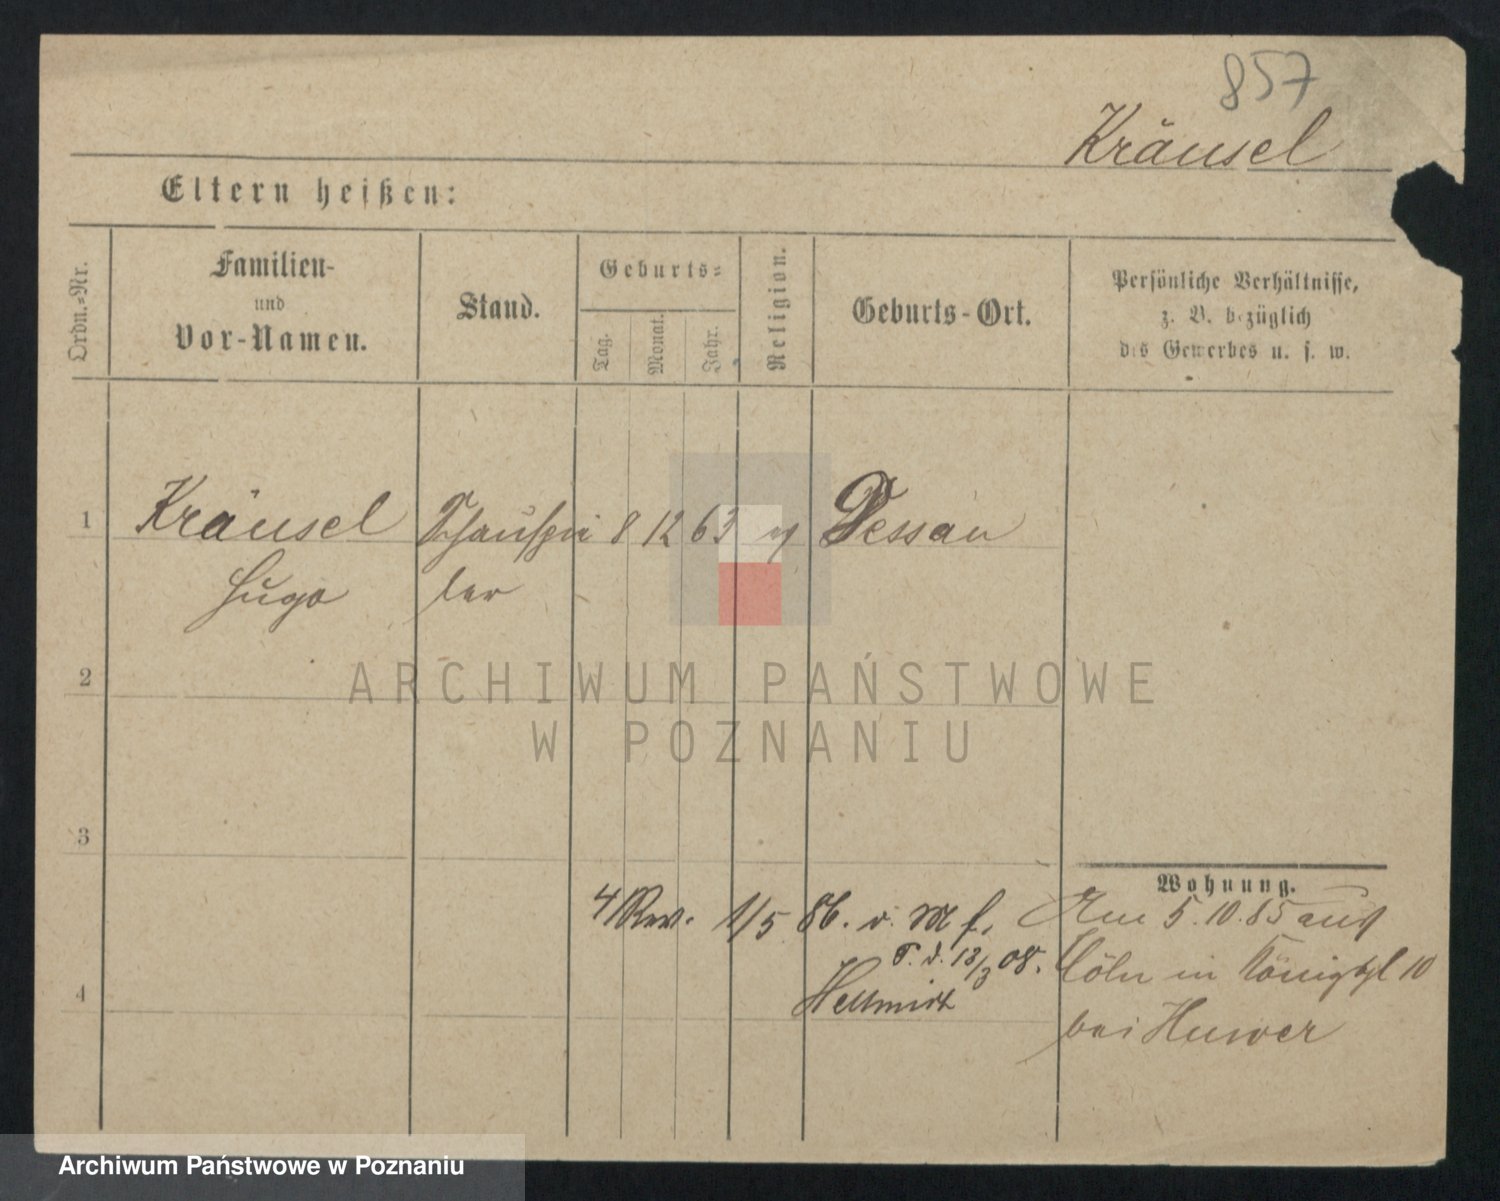 857
Kräusel
Eltern heißen:
Ordn.-Nr.
Familien-
und
Vor-Namen.
Stand.
Geburts-
Tag.
Monat.
Jahr.
Religion.
Geburts-Ort.
Persönliche Verhältnisse,
z. B. bezüglich
des Gewerbes u. s. w.
1 Kräusel Schauspie 8 12 63 Dessau
Hugo ler
2
ARCHIWUM PAŃSTWOWE
W POZNANIU
3
Wohnung.
4 Rev. 1/5 86. v. M f. Am 5.10.85 aus
T. d. 13/3 08. Cöln in Königspl 10
4 Hellmidt
bei Huwer
Archiwum Państwowe w Poznaniu